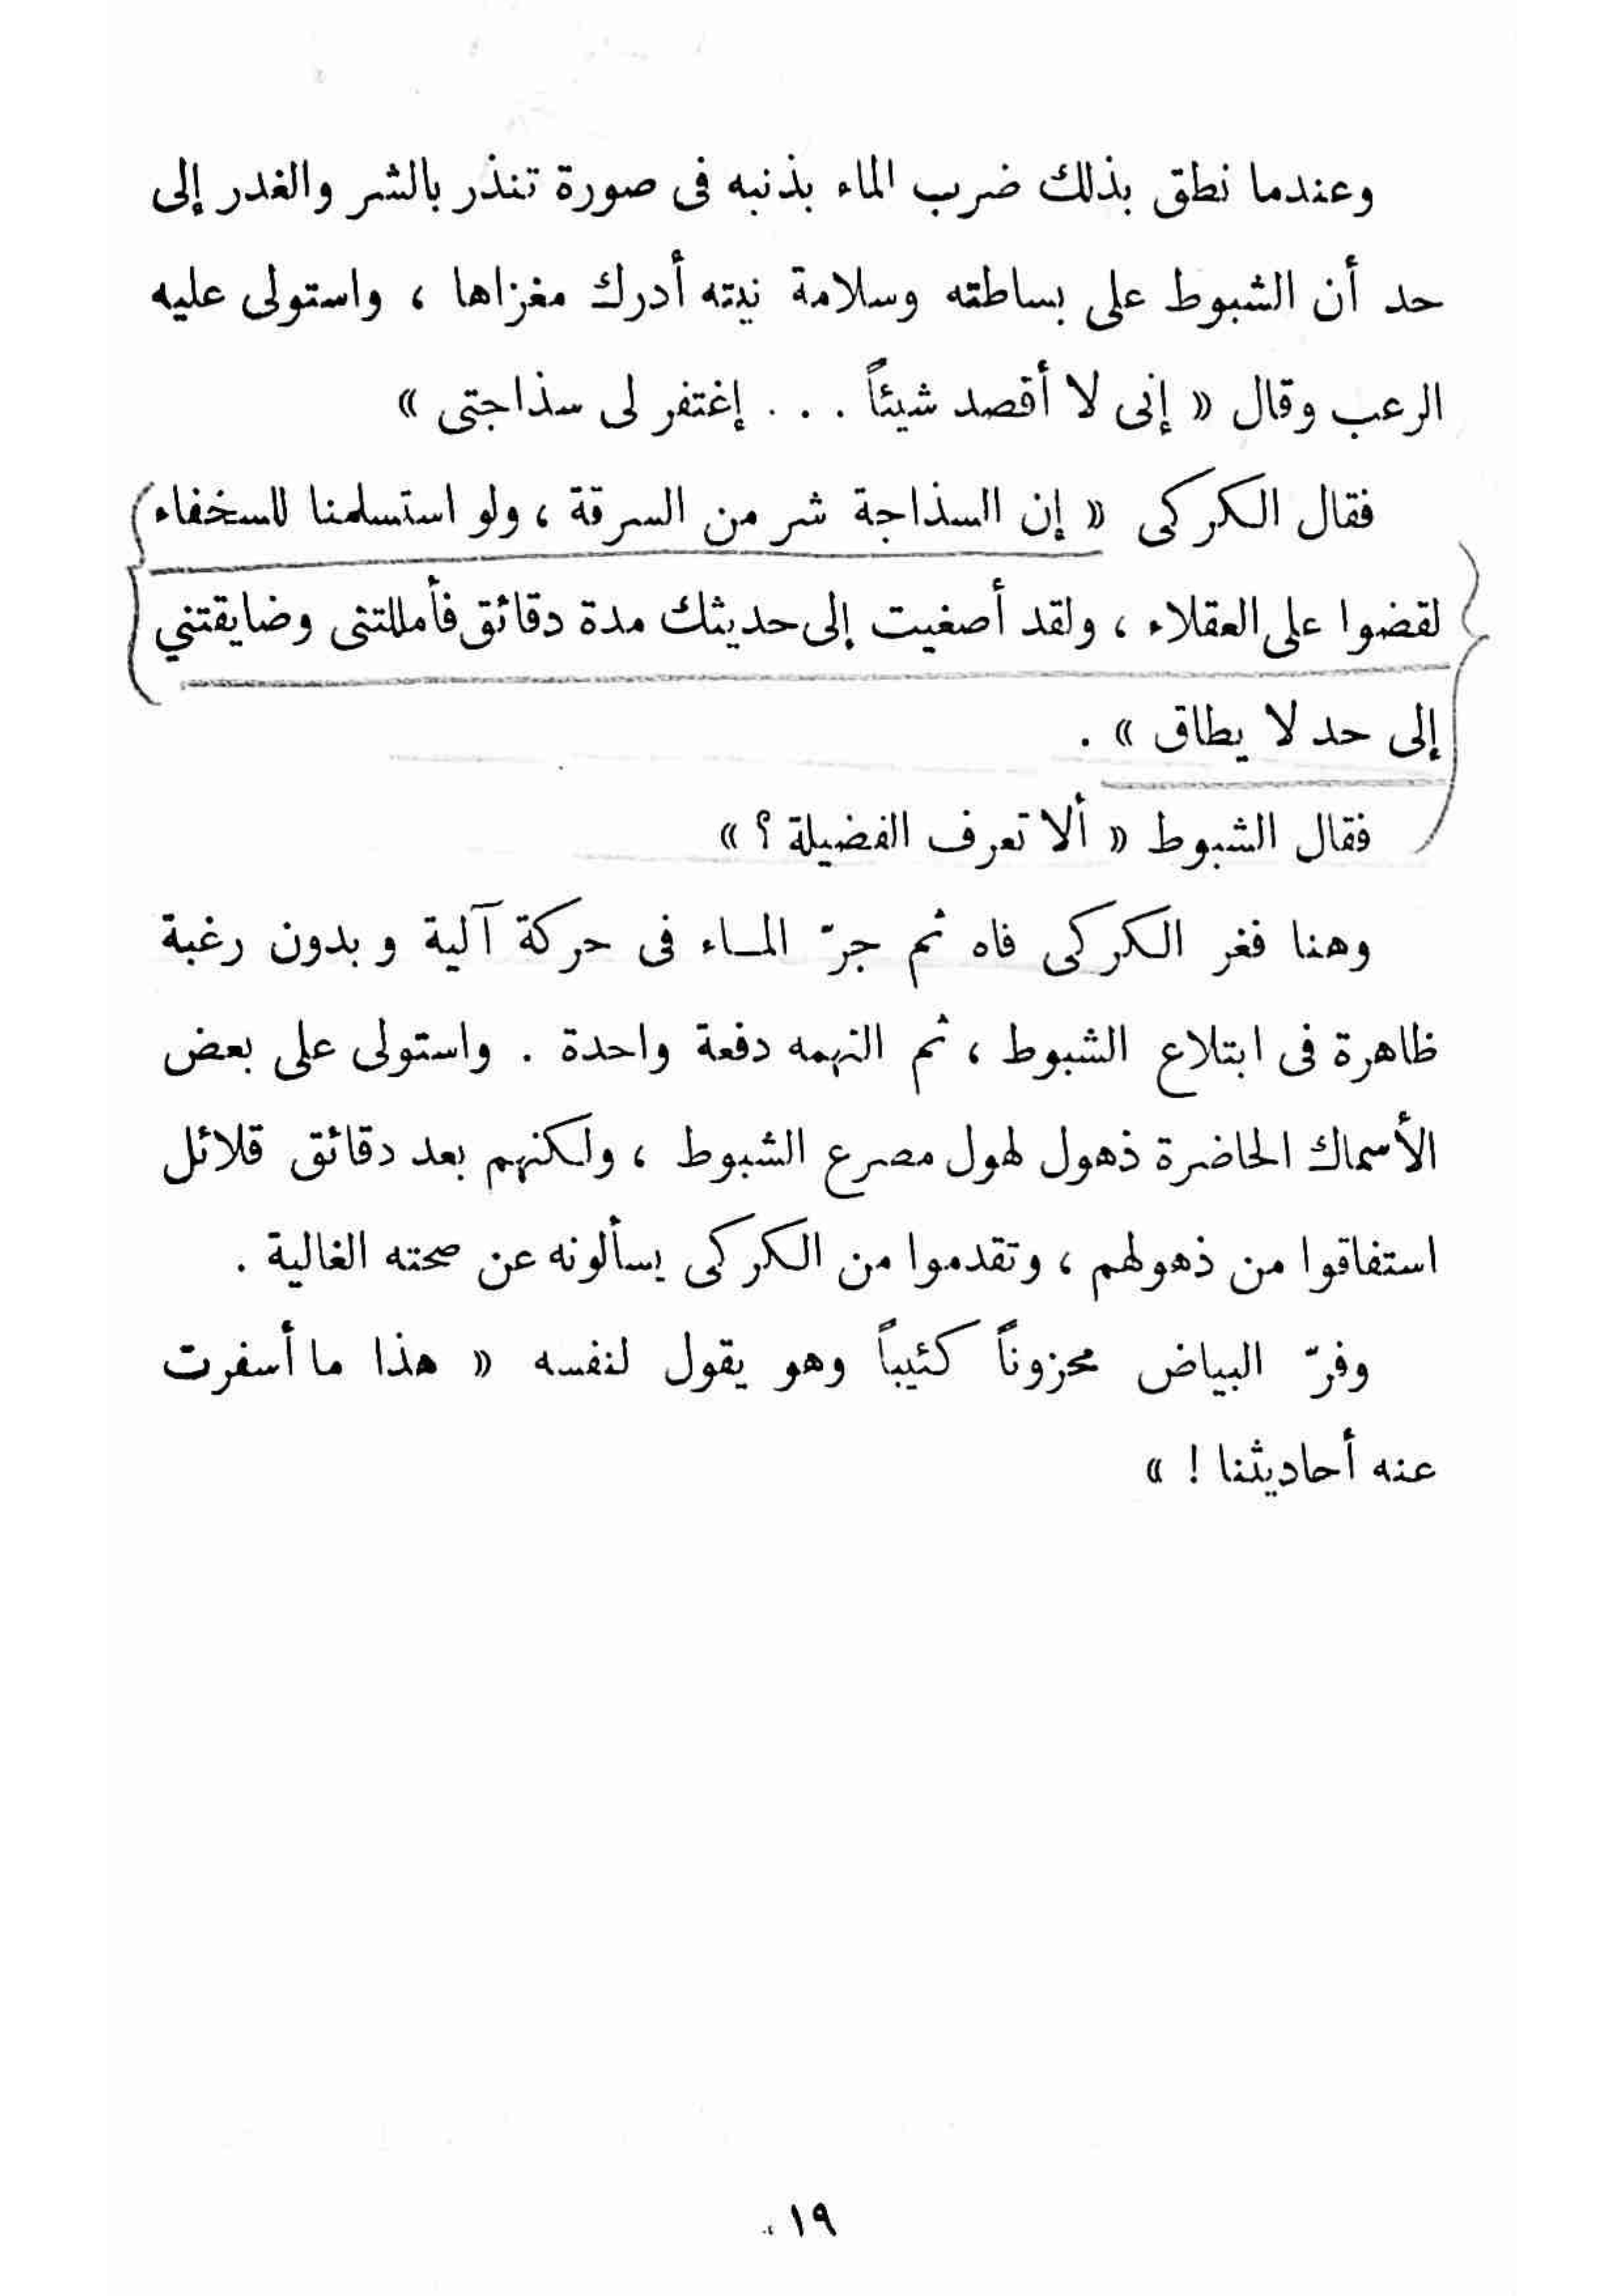 وعندما نطق بذلك ضرب الماء بذنبه فى صورة تنذر بالشر والغدر إلى
حد أن الشبوط على بساطته وسلامة نيته أدرك مغزاها ، واستولى عليه
الرعب وقال « إنى لا أقصد شيئاً . . . إغتفر لى سذاجتى »
فقال الكركى « إن السذاجة شر من السرقة ، ولو استسلمنا للسخفاء
لقضوا على العقلاء ، ولقد أصغيت إلى حديثك مدة دقائق فأمللتنى وضايقتني
إلى حد لا يطاق » .
فقال الشبوط « ألا تعرف الفضيلة ؟ »
وهنا فغر الكركى فاه ثم جرّ المـاء فى حركة آلية وبدون رغبة
ظاهرة فى ابتلاع الشبوط ، ثم التهمه دفعة واحدة . واستولى على بعض
الأسماك الحاضرة ذهول لهول مصرع الشبوط ، ولكنهم بعد دقائق قلائل
استفاقوا من ذهولهم ، وتقدموا من الكركى يسألونه عن صحته الغالية .
وفرّ البياض محزوناً كئيباً وهو يقول لنفسه « هذا ما أسفرت
عنه أحاديثنا ! »
١٩